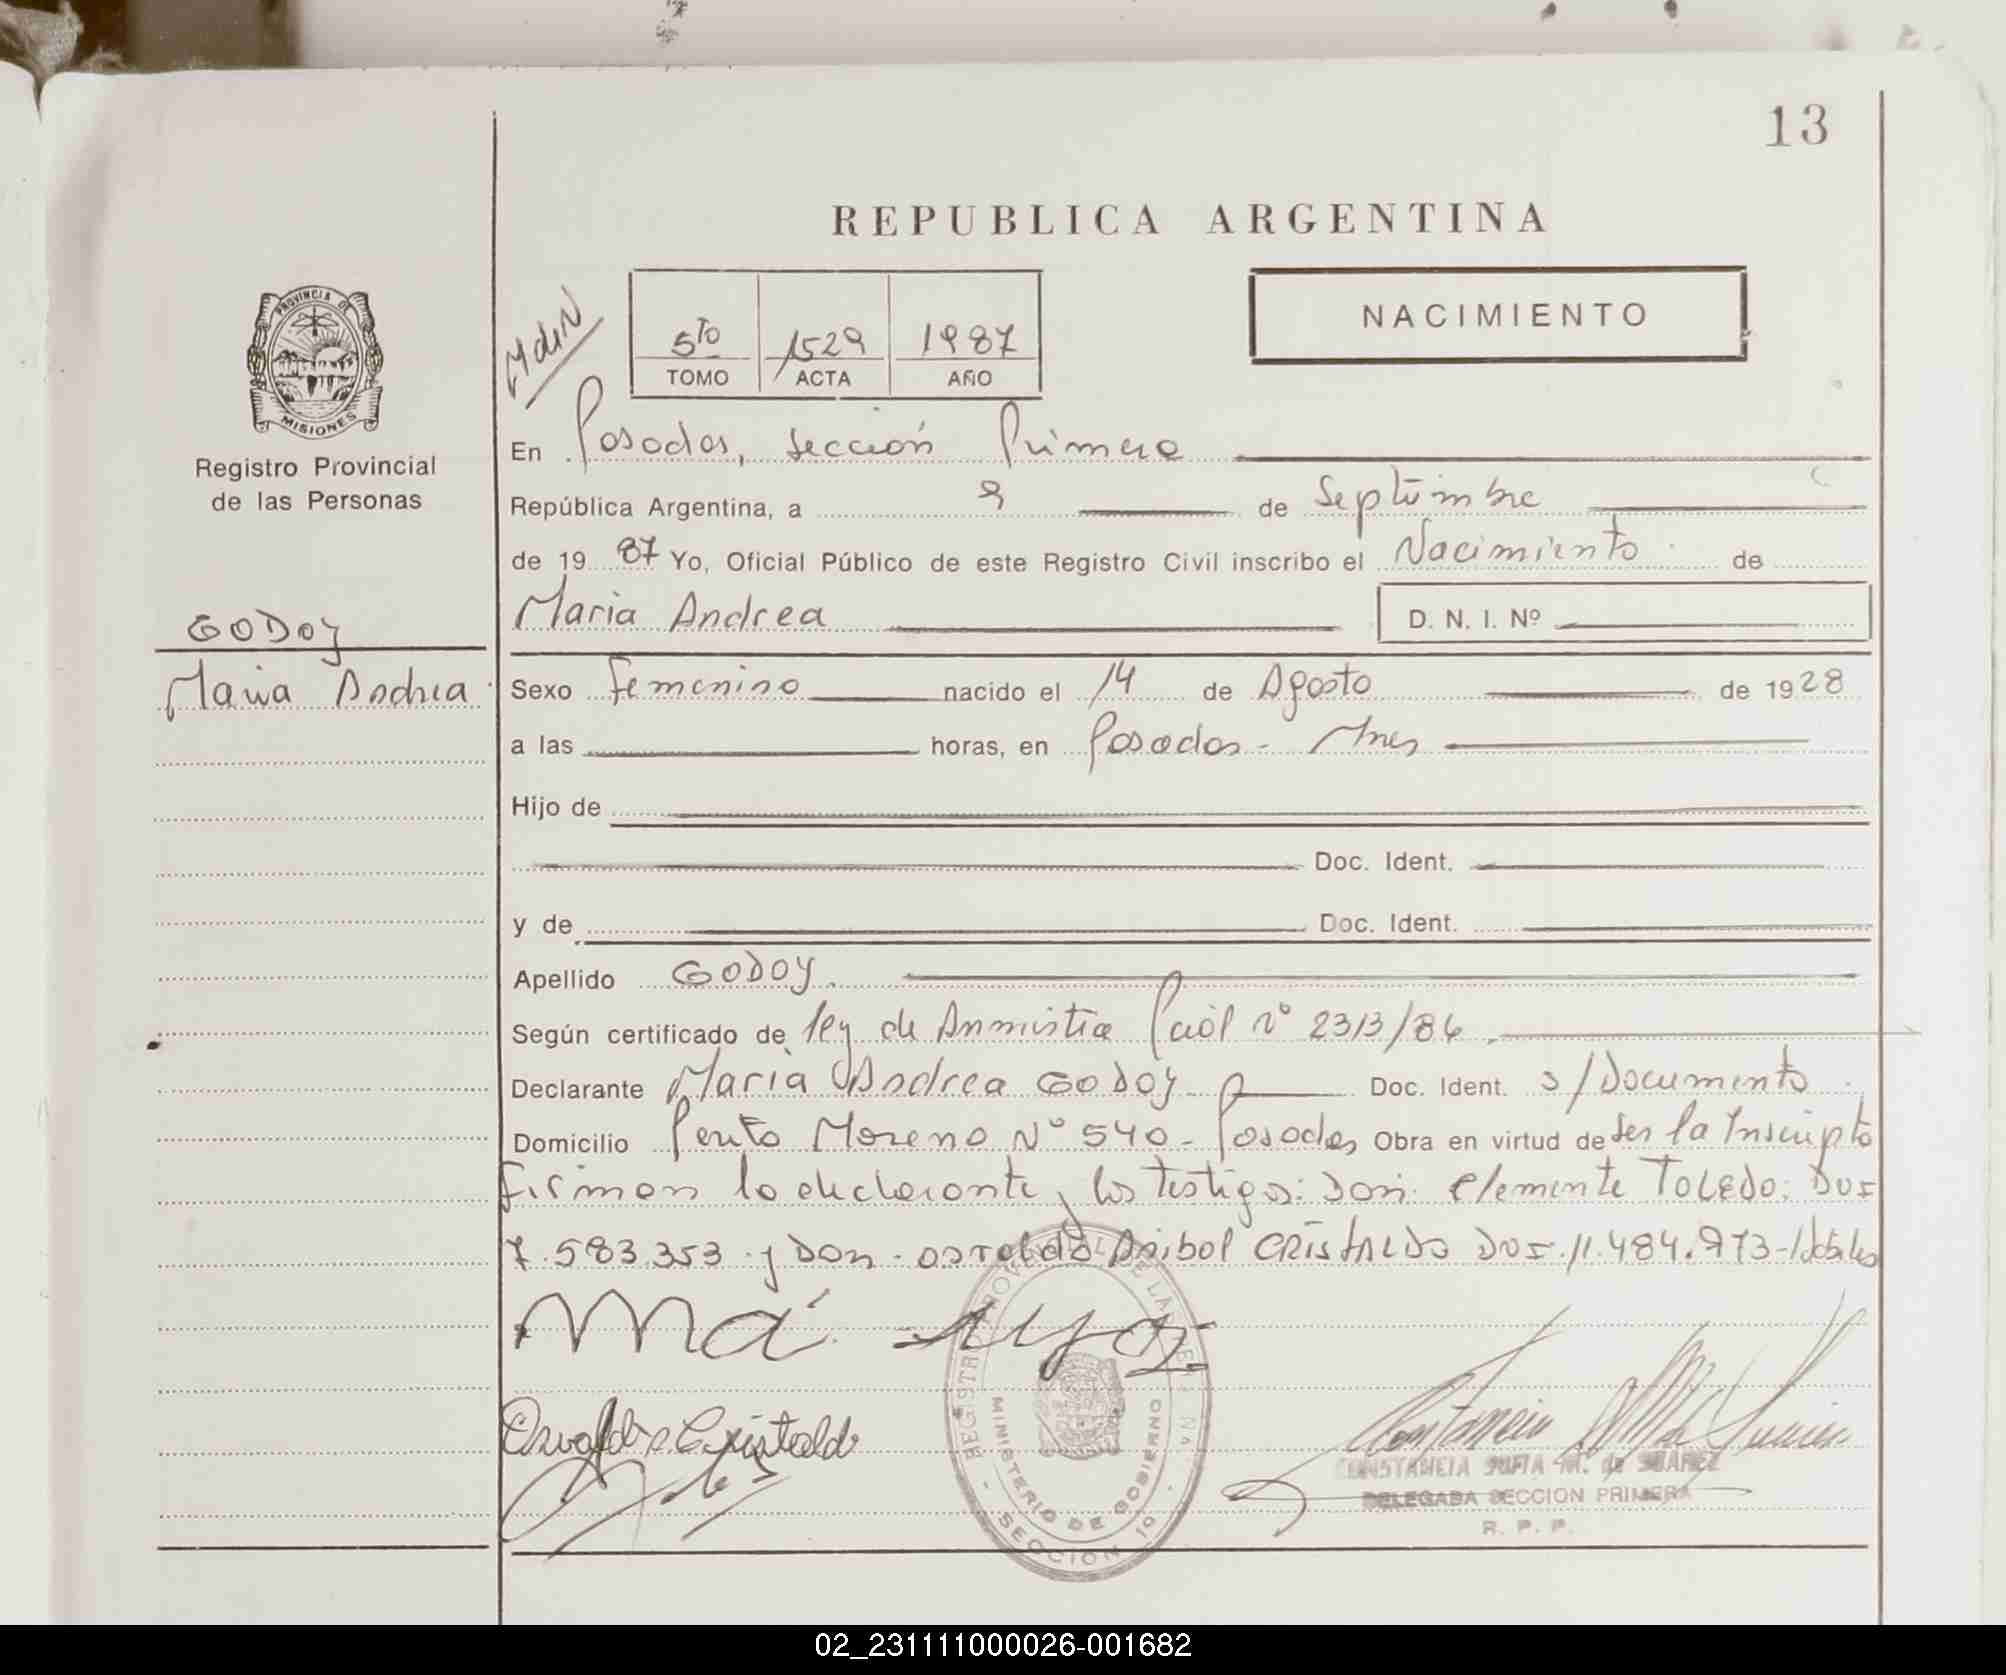 13
REPUBLICA ARGENTINA
PROVINCIA DE
MISIONES
Registro Provincial
de las Personas
GODOY
Maria Andrea
5TO 1529 1987
TOMO ACTA AÑO
NACIMIENTO
En Posadas, Sección Primera
República Argentina, a 9 de Septiembre
de 1987 Yo, Oficial Público de este Registro Civil inscribo el Nacimiento de
Maria Andrea D. N. I. Nº
Sexo Femenino nacido el 14 de Agosto de 1928
a las horas, en Posadas - Mnes
Hijo de
Doc. Ident.
y de Doc. Ident.
Apellido GODOY.
Según certificado de ley de Anmistia Pciàl nº 2313/86.
Declarante Maria Andrea GODOY Doc. Ident. s/Documento
Domicilio Perito Moreno Nº 540 - Posadas Obra en virtud de ser la Inscripta
Firman la declarante, los testigos: Don: Clemente TOLEDO: DNI
7.583.353 y Don Anibal CRISTALDO DNI. 11.484.973-
Ma
Osvaldo Cristaldo
REGISTRO PROVINCIAL DE LAS PERSONAS
MINISTERIO DE GOBIERNO
- SECCION 1º -
CONSTANCIA SOFIA M. de SUAREZ
DELEGADA SECCION PRIMERA
R. P. P.
02_231111000026-001682